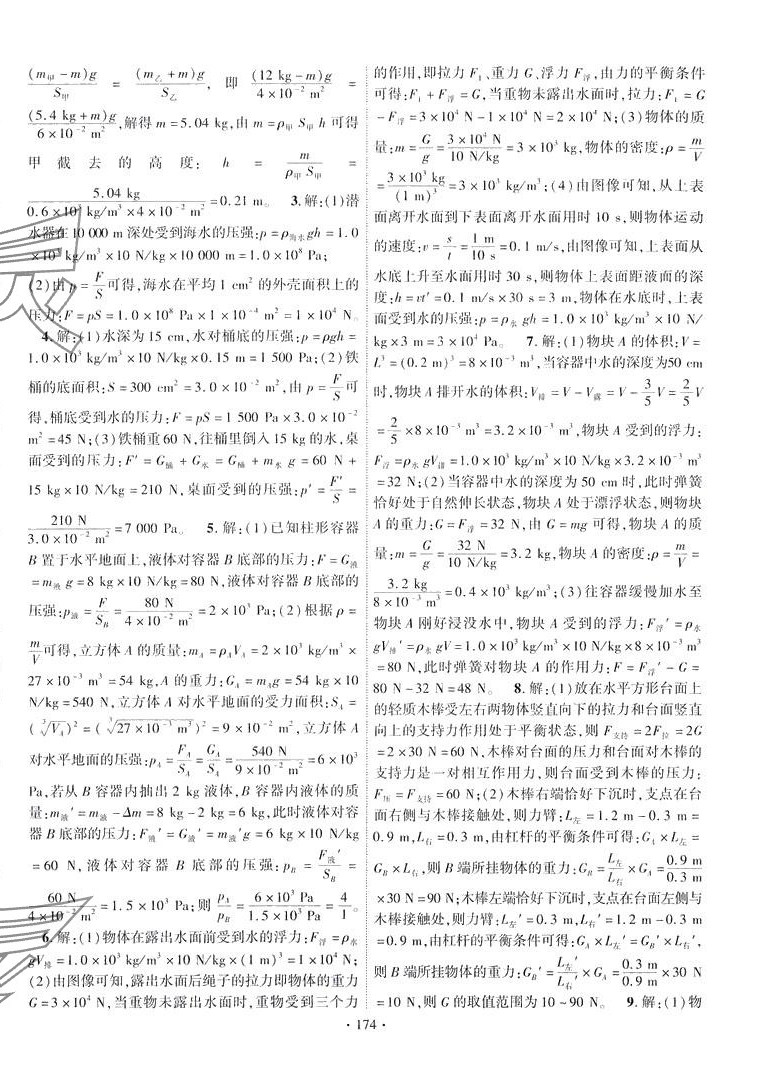 (m甲-m)g/S甲 = (m乙+m)g/S乙, 即 (12 kg-m)g/4×10⁻² m² =
(5.4 kg+m)g/6×10⁻² m²,解得 m=5.04 kg,由 m=ρ甲 S甲 h 可得
甲截去的高度: h = m/ρ甲 S甲 =
5.04 kg/0.6×10³ kg/m³×4×10⁻² m²=0.21 m。 3.解:(1)潜
水器在10 000 m深处受到海水的压强:p=ρ海水gh=1.0
×10³ kg/m³×10 N/kg×10 000 m=1.0×10⁸ Pa;
(2)由p=F/S可得,海水在平均1 cm²的外壳面积上的
压力:F=pS=1.0×10⁸ Pa×1×10⁻⁴ m²=1×10⁴ N。
4.解:(1)水深为15 cm,水对桶底的压强:p=ρgh=
1.0×10³ kg/m³×10 N/kg×0.15 m=1 500 Pa;(2)铁
桶的底面积:S=300 cm²=3.0×10⁻² m²,由p=F/S可
得,桶底受到水的压力:F=pS=1 500 Pa×3.0×10⁻²
m²=45 N;(3)铁桶重60 N,往桶里倒入15 kg的水,桌
面受到的压力:F′=G桶+G水=G桶+m水 g=60 N+
15 kg×10 N/kg=210 N,桌面受到的压强:p′=F′/S=
210 N/3.0×10⁻² m²=7 000 Pa。 5.解:(1)已知柱形容器
B置于水平地面上,液体对容器B底部的压力:F=G液
=m液 g=8 kg×10 N/kg=80 N,液体对容器B底部的
压强:p液=F/S_B=80 N/4×10⁻² m²=2×10³ Pa;(2)根据ρ=
m/V可得,立方体A的质量:m_A=ρ_A V_A=2×10³ kg/m³×
27×10⁻³ m³=54 kg,A的重力:G_A=m_A g=54 kg×10
N/kg=540 N,立方体A对水平地面的受力面积:S_A=
(∛V_A)²=(∛27×10⁻³ m³)²=9×10⁻² m²,立方体A
对水平地面的压强:p_A=F_A/S_A=G_A/S_A=540 N/9×10⁻² m²=6×10³
Pa,若从B容器内抽出2 kg液体,B容器内液体的质
量:m液′=m液-Δm=8 kg-2 kg=6 kg,此时液体对容
器B底部的压力:F液′=G液′=m液′g=6 kg×10 N/kg
=60 N,液体对容器B底部的压强:p_B=F液′/S_B=
60 N/4×10⁻² m²=1.5×10³ Pa;则 p_A/p_B=6×10³ Pa/1.5×10³ Pa=4/1。
6.解:(1)物体在露出水面前受到水的浮力:F浮=ρ水
gV排=1.0×10³ kg/m³×10 N/kg×(1 m)³=1×10⁴ N;
(2)由图像可知,露出水面后绳子的拉力即物体的重力
G=3×10⁴ N,当重物未露出水面时,重物受到三个力
的作用,即拉力F₁、重力G、浮力F浮,由力的平衡条件
可得:F₁+F浮=G,当重物未露出水面时,拉力:F₁=G
-F浮=3×10⁴ N-1×10⁴ N=2×10⁴ N;(3)物体的质
量:m=G/g=3×10⁴ N/10 N/kg=3×10³ kg,物体的密度:ρ=m/V
=3×10³ kg/(1 m)³=3×10³ kg/m³;(4)由图像可知,从上表
面离开水面到下表面离开水面用时10 s,则物体运动
的速度:v=s/t=1 m/10 s=0.1 m/s,由图像可知,上表面从
水底上升至水面用时30 s,则物体上表面距液面的深
度:h=vt′=0.1 m/s×30 s=3 m,物体在水底时,上表
面受到水的压强:p=ρ水 gh=1.0×10³ kg/m³×10 N/
kg×3 m=3×10⁴ Pa。 7.解:(1)物块A的体积:V=
L³=(0.2 m)³=8×10⁻³ m³,当容器中水的深度为50 cm
时,物块A排开水的体积:V排=V-V露=V-3/5V=2/5V
=2/5×8×10⁻³ m³=3.2×10⁻³ m³,物块A受到的浮力:
F浮=ρ水 gV排=1.0×10³ kg/m³×10 N/kg×3.2×10⁻³ m³
=32 N;(2)当容器中水的深度为50 cm时,此时弹簧
恰好处于自然伸长状态,物块A处于漂浮状态,则物块
A的重力:G=F浮=32 N,由G=mg可得,物块A的质
量:m=G/g=32 N/10 N/kg=3.2 kg,物块A的密度:ρ=m/V=
3.2 kg/8×10⁻³ m³=0.4×10³ kg/m³;(3)往容器缓慢加水至
物块A刚好浸没水中,物块A受到的浮力:F浮′=ρ水
gV排′=ρ水 gV=1.0×10³ kg/m³×10 N/kg×8×10⁻³ m³
=80 N,此时弹簧对物块A的作用力:F=F浮′-G=
80 N-32 N=48 N。 8.解:(1)放在水平方形台面上
的轻质木棒受左右两物体竖直向下的拉力和台面竖直
向上的支持力作用处于平衡状态,则F支持=2F拉=2G
=2×30 N=60 N,木棒对台面的压力和台面对木棒的
支持力是一对相互作用力,则台面受到木棒的压力:
F压=F支持=60 N;(2)木棒右端恰好下沉时,支点在台
面右侧与木棒接触处,则力臂:L左=1.2 m-0.3 m=
0.9 m,L右=0.3 m,由杠杆的平衡条件可得:G_A×L左=
G_B×L右,则B端所挂物体的重力:G_B=L左/L右×G_A=0.9 m/0.3 m
×30 N=90 N;木棒左端恰好下沉时,支点在台面左侧与
木棒接触处,则力臂:L左′=0.3 m,L右′=1.2 m-0.3 m
=0.9 m,由杠杆的平衡条件可得:G_A×L左′=G_B′×L右′,
则B端所挂物体的重力:G_B′=L左′/L右′×G_A=0.3 m/0.9 m×30 N
=10 N,则G的取值范围为10~90 N。 9.解:(1)物
· 174 ·